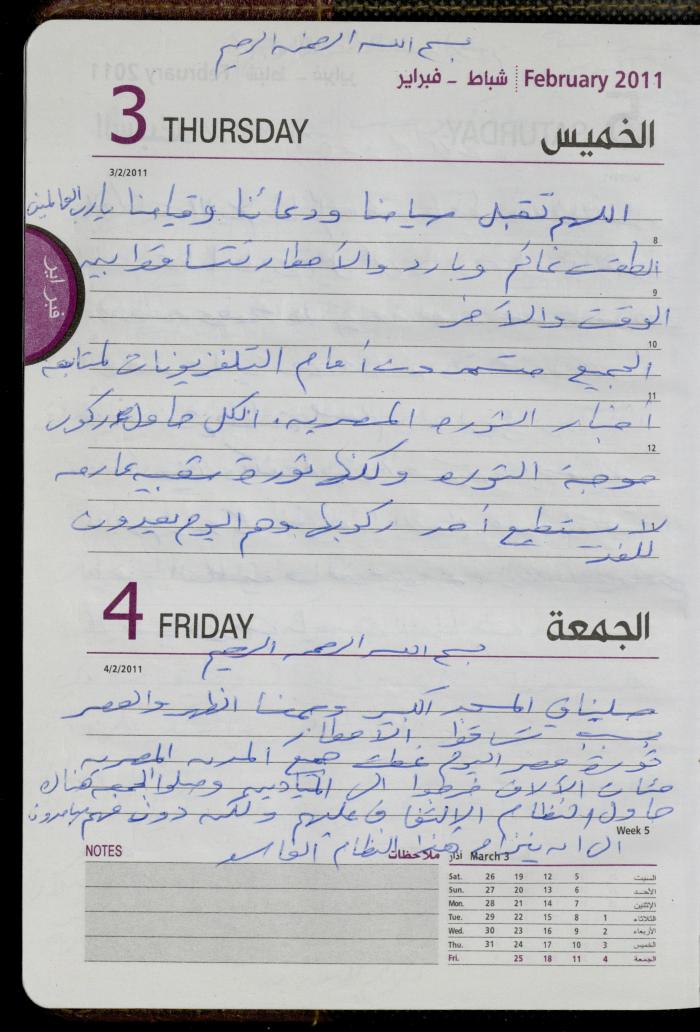 بسم الله الرحمن الرحيم
شباط - فبراير February 2011
3 THURSDAY الخميس
3/2/2011
اللهم تقبل صيامنا ودعائنا وقيامنا يارب العالمين
8
الطقس غائم وبارد والأمطار تتساقط بين
9
الوقت والآخر
10
الجميع أمام التلفزيونات لمتابعة
11
أخبار الثوره المصريه. الكل حاول ركوب
12
موجة الثوره ولكنها ثورة شعبيه عارمه
لا يستطيع أحد ركوبها وهم اليوم يعدون
للغد
فبراير
4 FRIDAY الجمعة
بسم الله الرحمن الرحيم
4/2/2011
صلينا في المسجد الكبير وجمعنا الظهر والعصر
بسبب تساقط الأمطار
ثورة مصر اليوم غطت جميع المدن المصريه
مئات الآلاف خرجوا الى الميادين وصلوا الجمعه هناك
حاول النظام الإلتفاف عليهم ولكنه دون
Week 5
الى ان هذا النظام الفاسد
NOTES ملاحظات
March 3 آذار
Sat. 26 19 12 5 السبت
Sun. 27 20 13 6 الأحد
Mon. 28 21 14 7 الإثنين
Tue. 29 22 15 8 1 الثلاثاء
Wed. 30 23 16 9 2 الأربعاء
Thu. 31 24 17 10 3 الخميس
Fri. 25 18 11 4 الجمعة